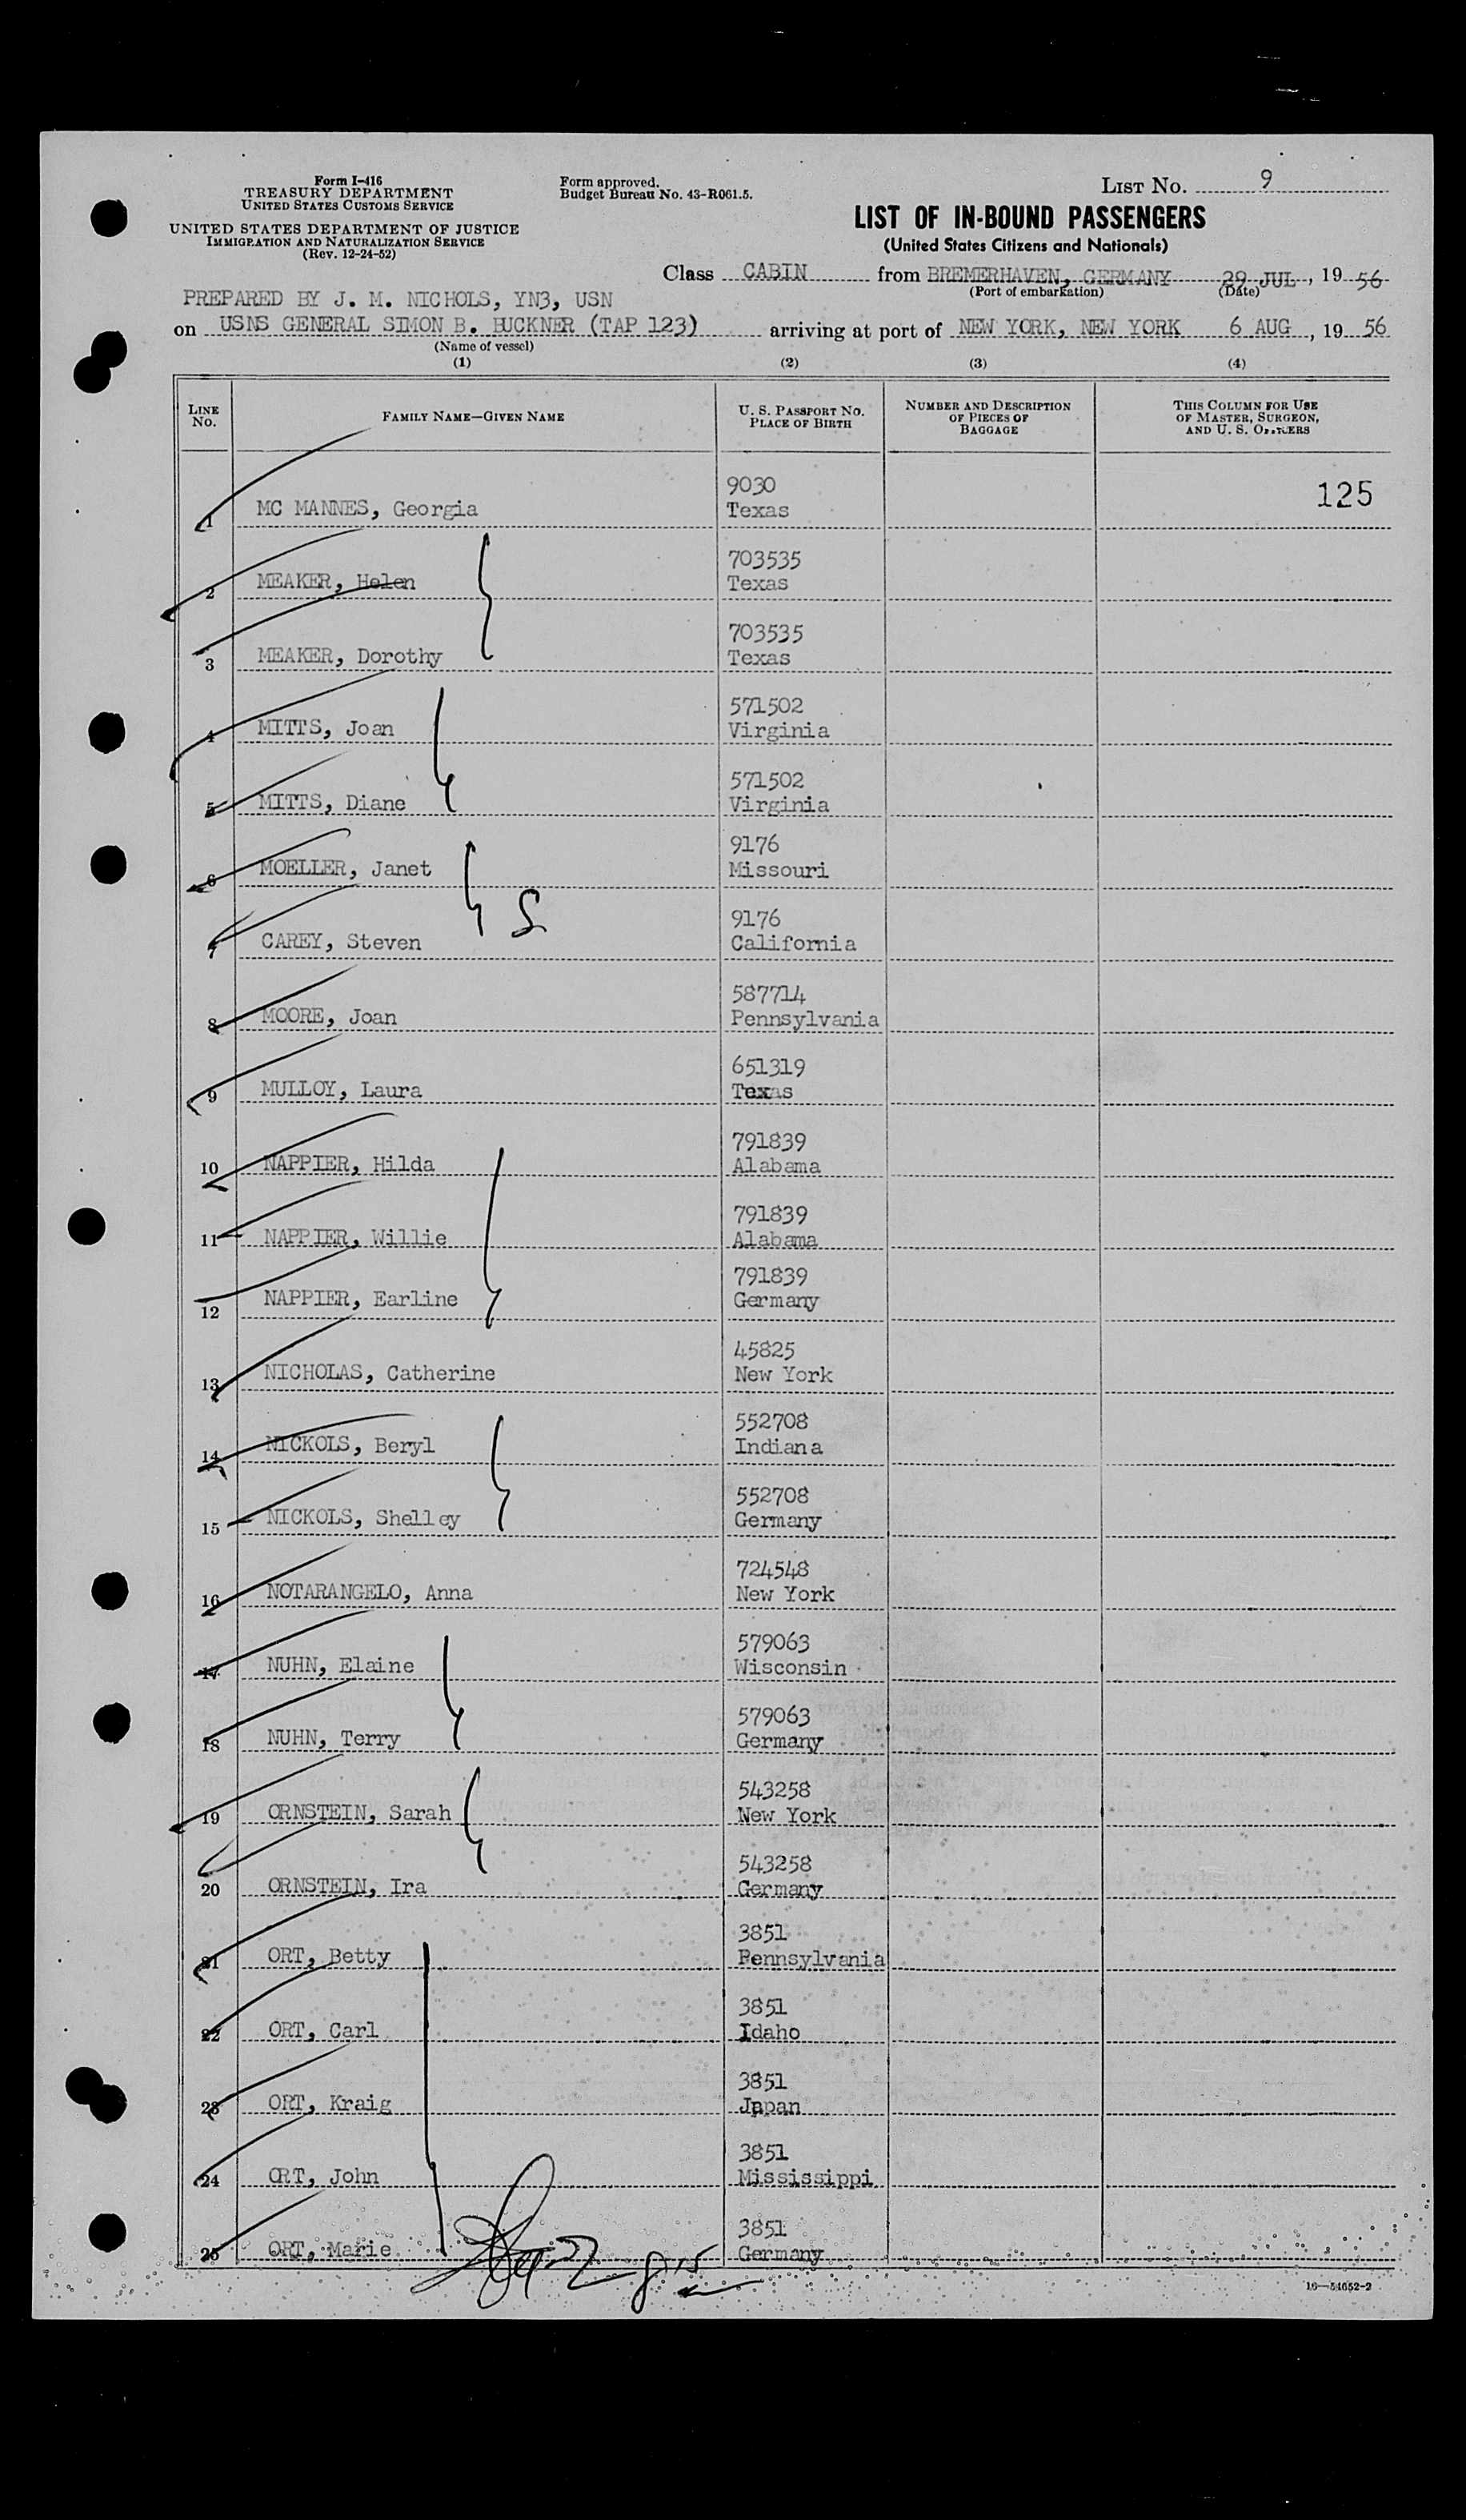 Form I-416
TREASURY DEPARTMENT
UNITED STATES CUSTOMS SERVICE
UNITED STATES DEPARTMENT OF JUSTICE
IMMIGRATION AND NATURALIZATION SERVICE
(Rev. 12-24-52)
Form approved.
Budget Bureau No. 43-R061.5.
LIST No. 9
LIST OF IN-BOUND PASSENGERS
(United States Citizens and Nationals)
Class CABIN from BREMERHAVEN, GERMANY 29 JUL, 19 56
(Port of embarkation) (Date)
PREPARED BY J. M. NICHOLS, YN3, USN
on USNS GENERAL SIMON B. BUCKNER (TAP 123) arriving at port of NEW YORK, NEW YORK 6 AUG, 19 56
(Name of vessel)
(1) (2) (3) (4)
LINE No. FAMILY NAME—GIVEN NAME U. S. PASSPORT No. PLACE OF BIRTH NUMBER AND DESCRIPTION OF PIECES OF BAGGAGE THIS COLUMN FOR USE OF MASTER, SURGEON, AND U. S. OFFICERS
9030
1 MC MANNES, Georgia Texas 125
703535
2 MEAKER, Helen Texas
703535
3 MEAKER, Dorothy Texas
571502
4 MITTS, Joan Virginia
571502
5 MITTS, Diane Virginia
9176
6 MOELLER, Janet Missouri
9176
7 CAREY, Steven California
587714
8 MOORE, Joan Pennsylvania
651319
9 MULLOY, Laura Texas
791839
10 NAPPIER, Hilda Alabama
791839
11 NAPPIER, Willie Alabama
791839
12 NAPPIER, Earline Germany
45825
13 NICHOLAS, Catherine New York
552708
14 NICKOLS, Beryl Indiana
552708
15 NICKOLS, Shelley Germany
724548
16 NOTARANGELO, Anna New York
579063
17 NUHN, Elaine Wisconsin
579063
18 NUHN, Terry Germany
543258
19 ORNSTEIN, Sarah New York
543258
20 ORNSTEIN, Ira Germany
3851
21 ORT, Betty Pennsylvania
3851
22 ORT, Carl Idaho
3851
23 ORT, Kraig Japan
3851
24 ORT, John Mississippi
3851
25 ORT, Marie Germany
16—54652-2